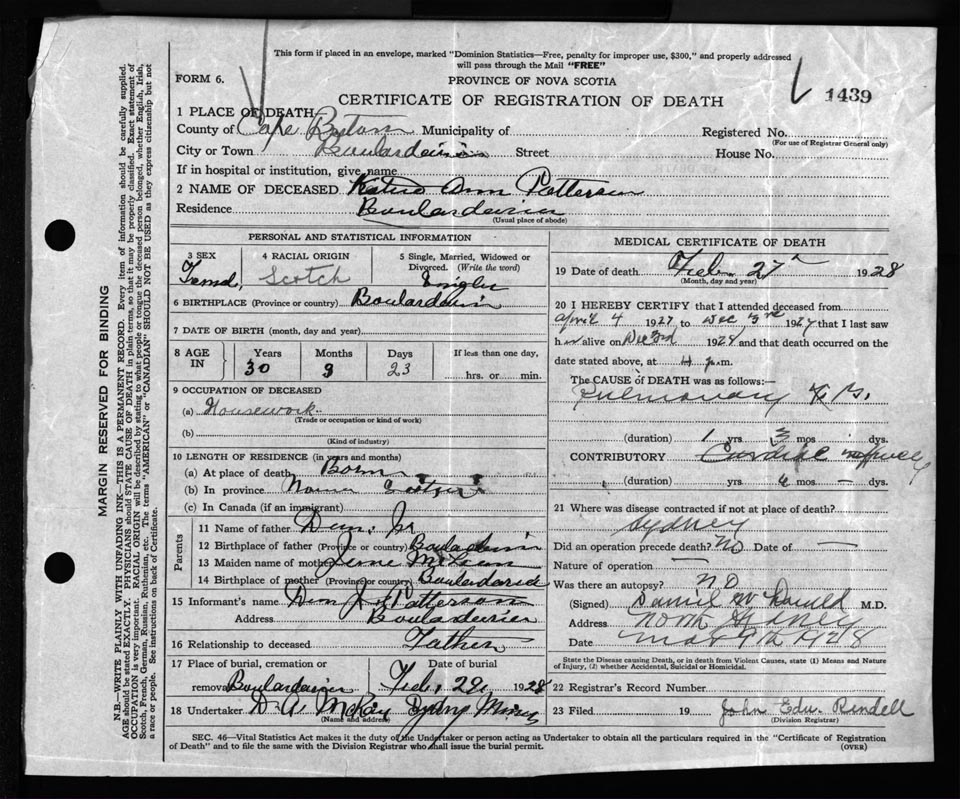 This form if placed in an envelope, marked "Dominion Statistics—Free, penalty for improper use, $300," and properly addressed
will pass through the Mail "FREE"
FORM 6.
PROVINCE OF NOVA SCOTIA
CERTIFICATE OF REGISTRATION OF DEATH
1439
1 PLACE OF DEATH
County of Cape Breton Municipality of
Registered No.
(For use of Registrar General only)
City or Town Street House No.
If in hospital or institution, give name
2 NAME OF DECEASED Ann Patterson
Residence
(Usual place of abode)
PERSONAL AND STATISTICAL INFORMATION
3 SEX
4 RACIAL ORIGIN Scotch
5 Single, Married, Widowed or Divorced. (Write the word)
6 BIRTHPLACE (Province or country)
7 DATE OF BIRTH (month, day and year)
8 AGE IN Years Months Days If less than one day,
30 9 23 hrs. or min.
9 OCCUPATION OF DECEASED
(a) Housework
(Trade or occupation or kind of work)
(b)
(Kind of industry)
10 LENGTH OF RESIDENCE (in years and months)
(a) At place of death Born
(b) In province Nova Scotia
(c) In Canada (if an immigrant)
Parents
11 Name of father
12 Birthplace of father (Province or country)
13 Maiden name of mother
14 Birthplace of mother (Province or country)
15 Informant's name Patterson
Address
16 Relationship to deceased Father
17 Place of burial, cremation or removal
Date of burial
Feb. 29, 1928
18 Undertaker D. A. McKay Sydney Mines
(Name and address)
MEDICAL CERTIFICATE OF DEATH
19 Date of death Feb. 27th 1928
(Month, day and year)
20 I HEREBY CERTIFY that I attended deceased from
April 4 1927 to Dec 3rd 1927 that I last saw
h alive on Dec 3rd and that death occurred on the
date stated above, at 4 p.m.
The CAUSE of DEATH was as follows:—
Pulmonary T. B.
(duration) 1 yrs 3 mos dys.
CONTRIBUTORY Cardiac
(duration) yrs mos — dys.
21 Where was disease contracted if not at place of death?
Sydney
Did an operation precede death? No Date of —
Nature of operation —
Was there an autopsy? No
(Signed) Daniel McDonald M.D.
Address North Sydney
Date
State the Disease causing Death, or in death from Violent Causes, state (1) Means and Nature
of Injury, (2) whether Accidental, Suicidal or Homicidal.
22 Registrar's Record Number
23 Filed 19 John Edw. Rendell
(Division Registrar)
SEC. 46—Vital Statistics Act makes it the duty of the Undertaker or person acting as Undertaker to obtain all the particulars required in the "Certificate of Registration
of Death" and to file the same with the Division Registrar who shall issue the burial permit. (OVER)
MARGIN RESERVED FOR BINDING
N.B.—WRITE PLAINLY WITH UNFADING INK—THIS IS A PERMANENT RECORD. Every item of information should be carefully supplied.
AGE should be stated EXACTLY. PHYSICIANS should STATE CAUSE OF DEATH in plain terms, so that it may be properly classified. Exact statement of
OCCUPATION is very important. RACIAL ORIGIN will be described by stating to what people or tongue the deceased person belonged, whether English, Irish,
Scotch, French, German, Russian, Ruthenian, etc. The terms "AMERICAN" or "CANADIAN" SHOULD NOT BE USED as they express citizenship but not
a race or people. See instructions on back of Certificate.